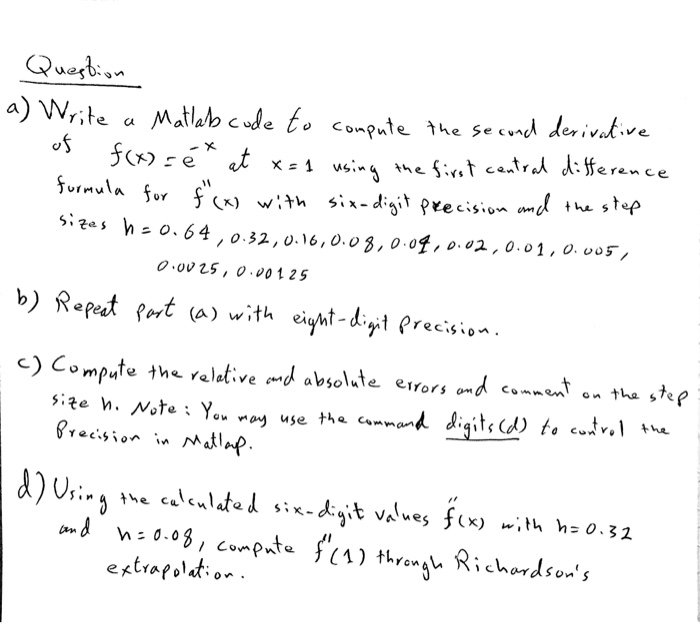 Question
a) Write a Matlab code to compute the second derivative
of f(x) = e^-x at x = 1 using the first central difference
formula for f''(x) with six-digit precision and the step
sizes h = 0.64, 0.32, 0.16, 0.08, 0.04, 0.02, 0.01, 0.005,
0.0025, 0.00125
b) Repeat part (a) with eight-digit precision.
c) Compute the relative and absolute errors and comment on the step
size h. Note: You may use the command digits(d) to control the
Precision in Matlap.
d) Using the calculated six-digit values f''(x) with h = 0.32
and h = 0.08, compute f''(1) through Richardson's
extrapolation.